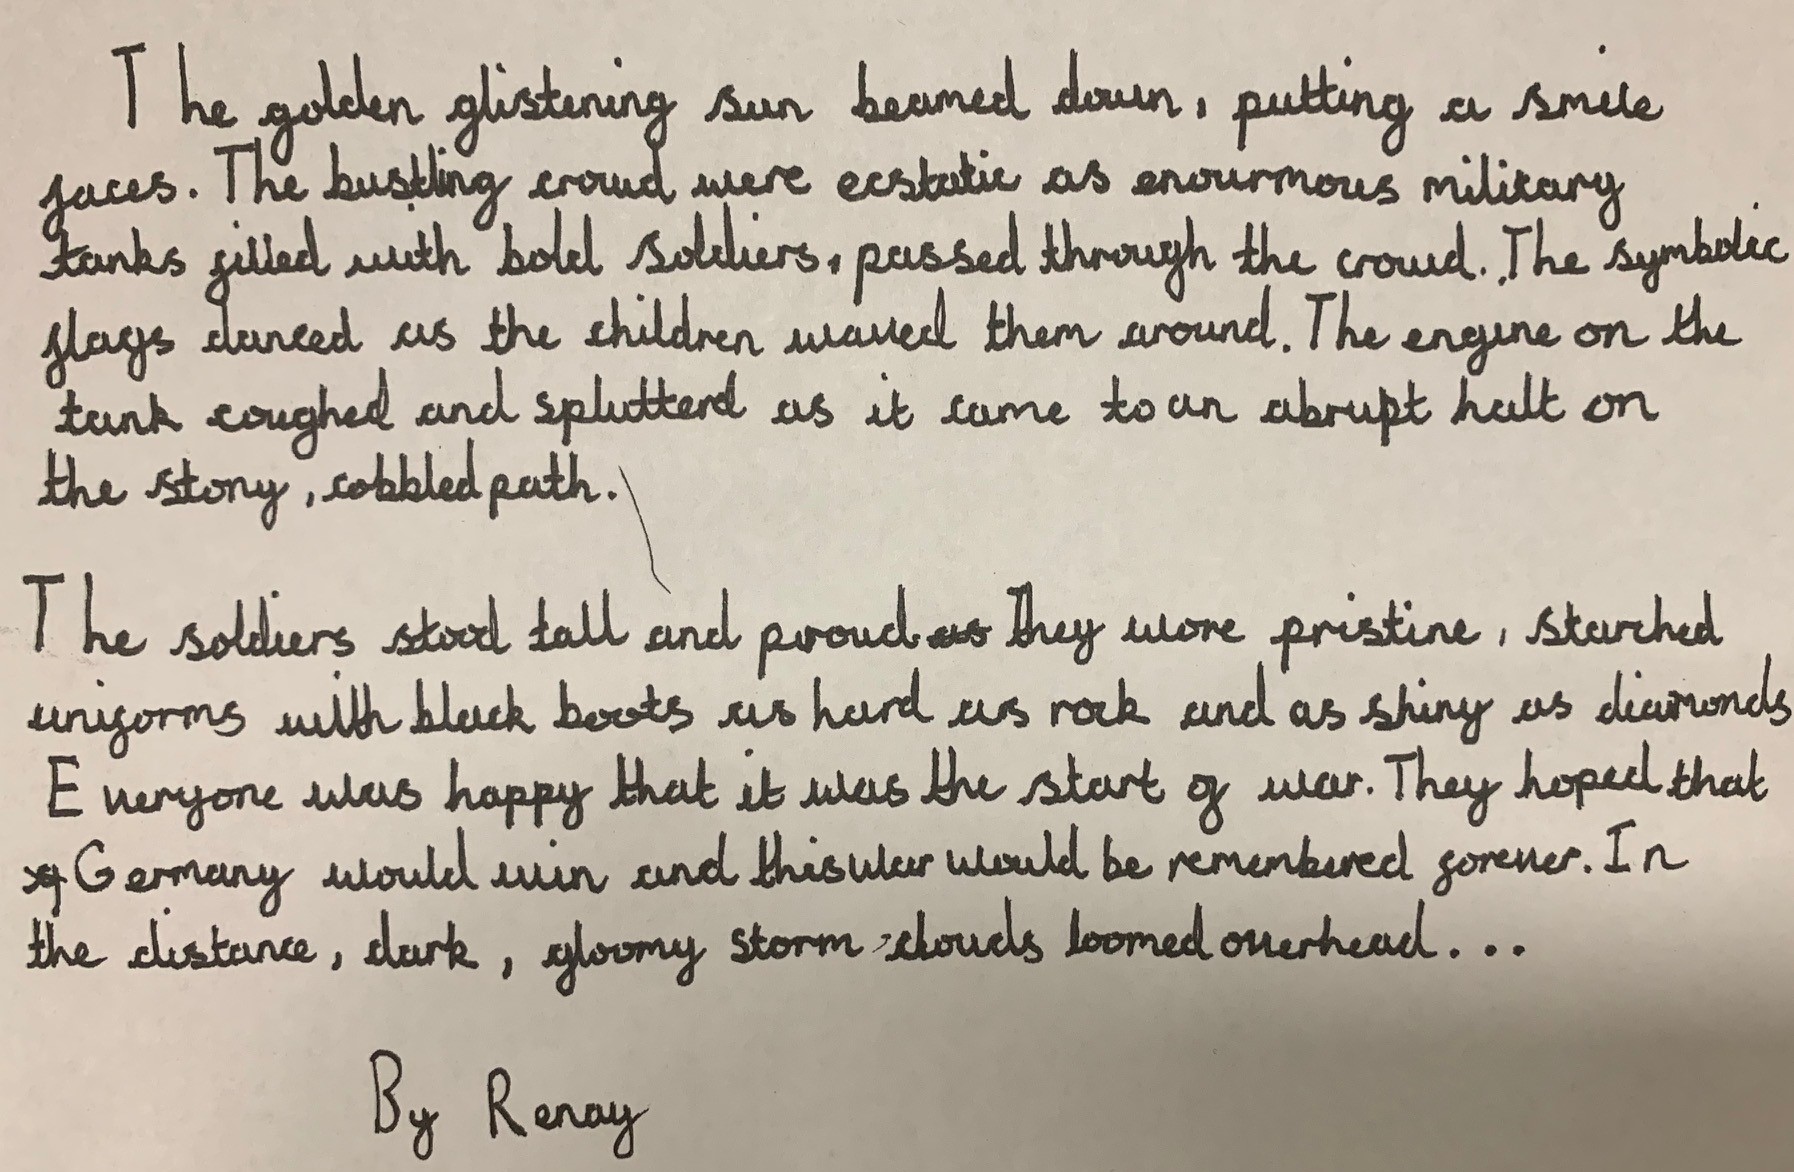 The golden glistening sun beamed down, putting a smile
faces. The bustling crowd were ecstatic as enourmous military
tanks filled with bold soldiers, passed through the crowd. The symbolic
flags danced as the children waved them around. The engine on the
tank coughed and splutterd as it came to an abrupt halt on
the stony, cobbled path.
The soldiers stood tall and proud. They wore pristine, starched
uniforms with black boots as hard as rock and as shiny as diamonds
Everyone was happy that it was the start of war. They hoped that
Germany would win and this war would be remembered forever. In
the distance, dark, gloomy storm clouds loomed overhead...
By Renay